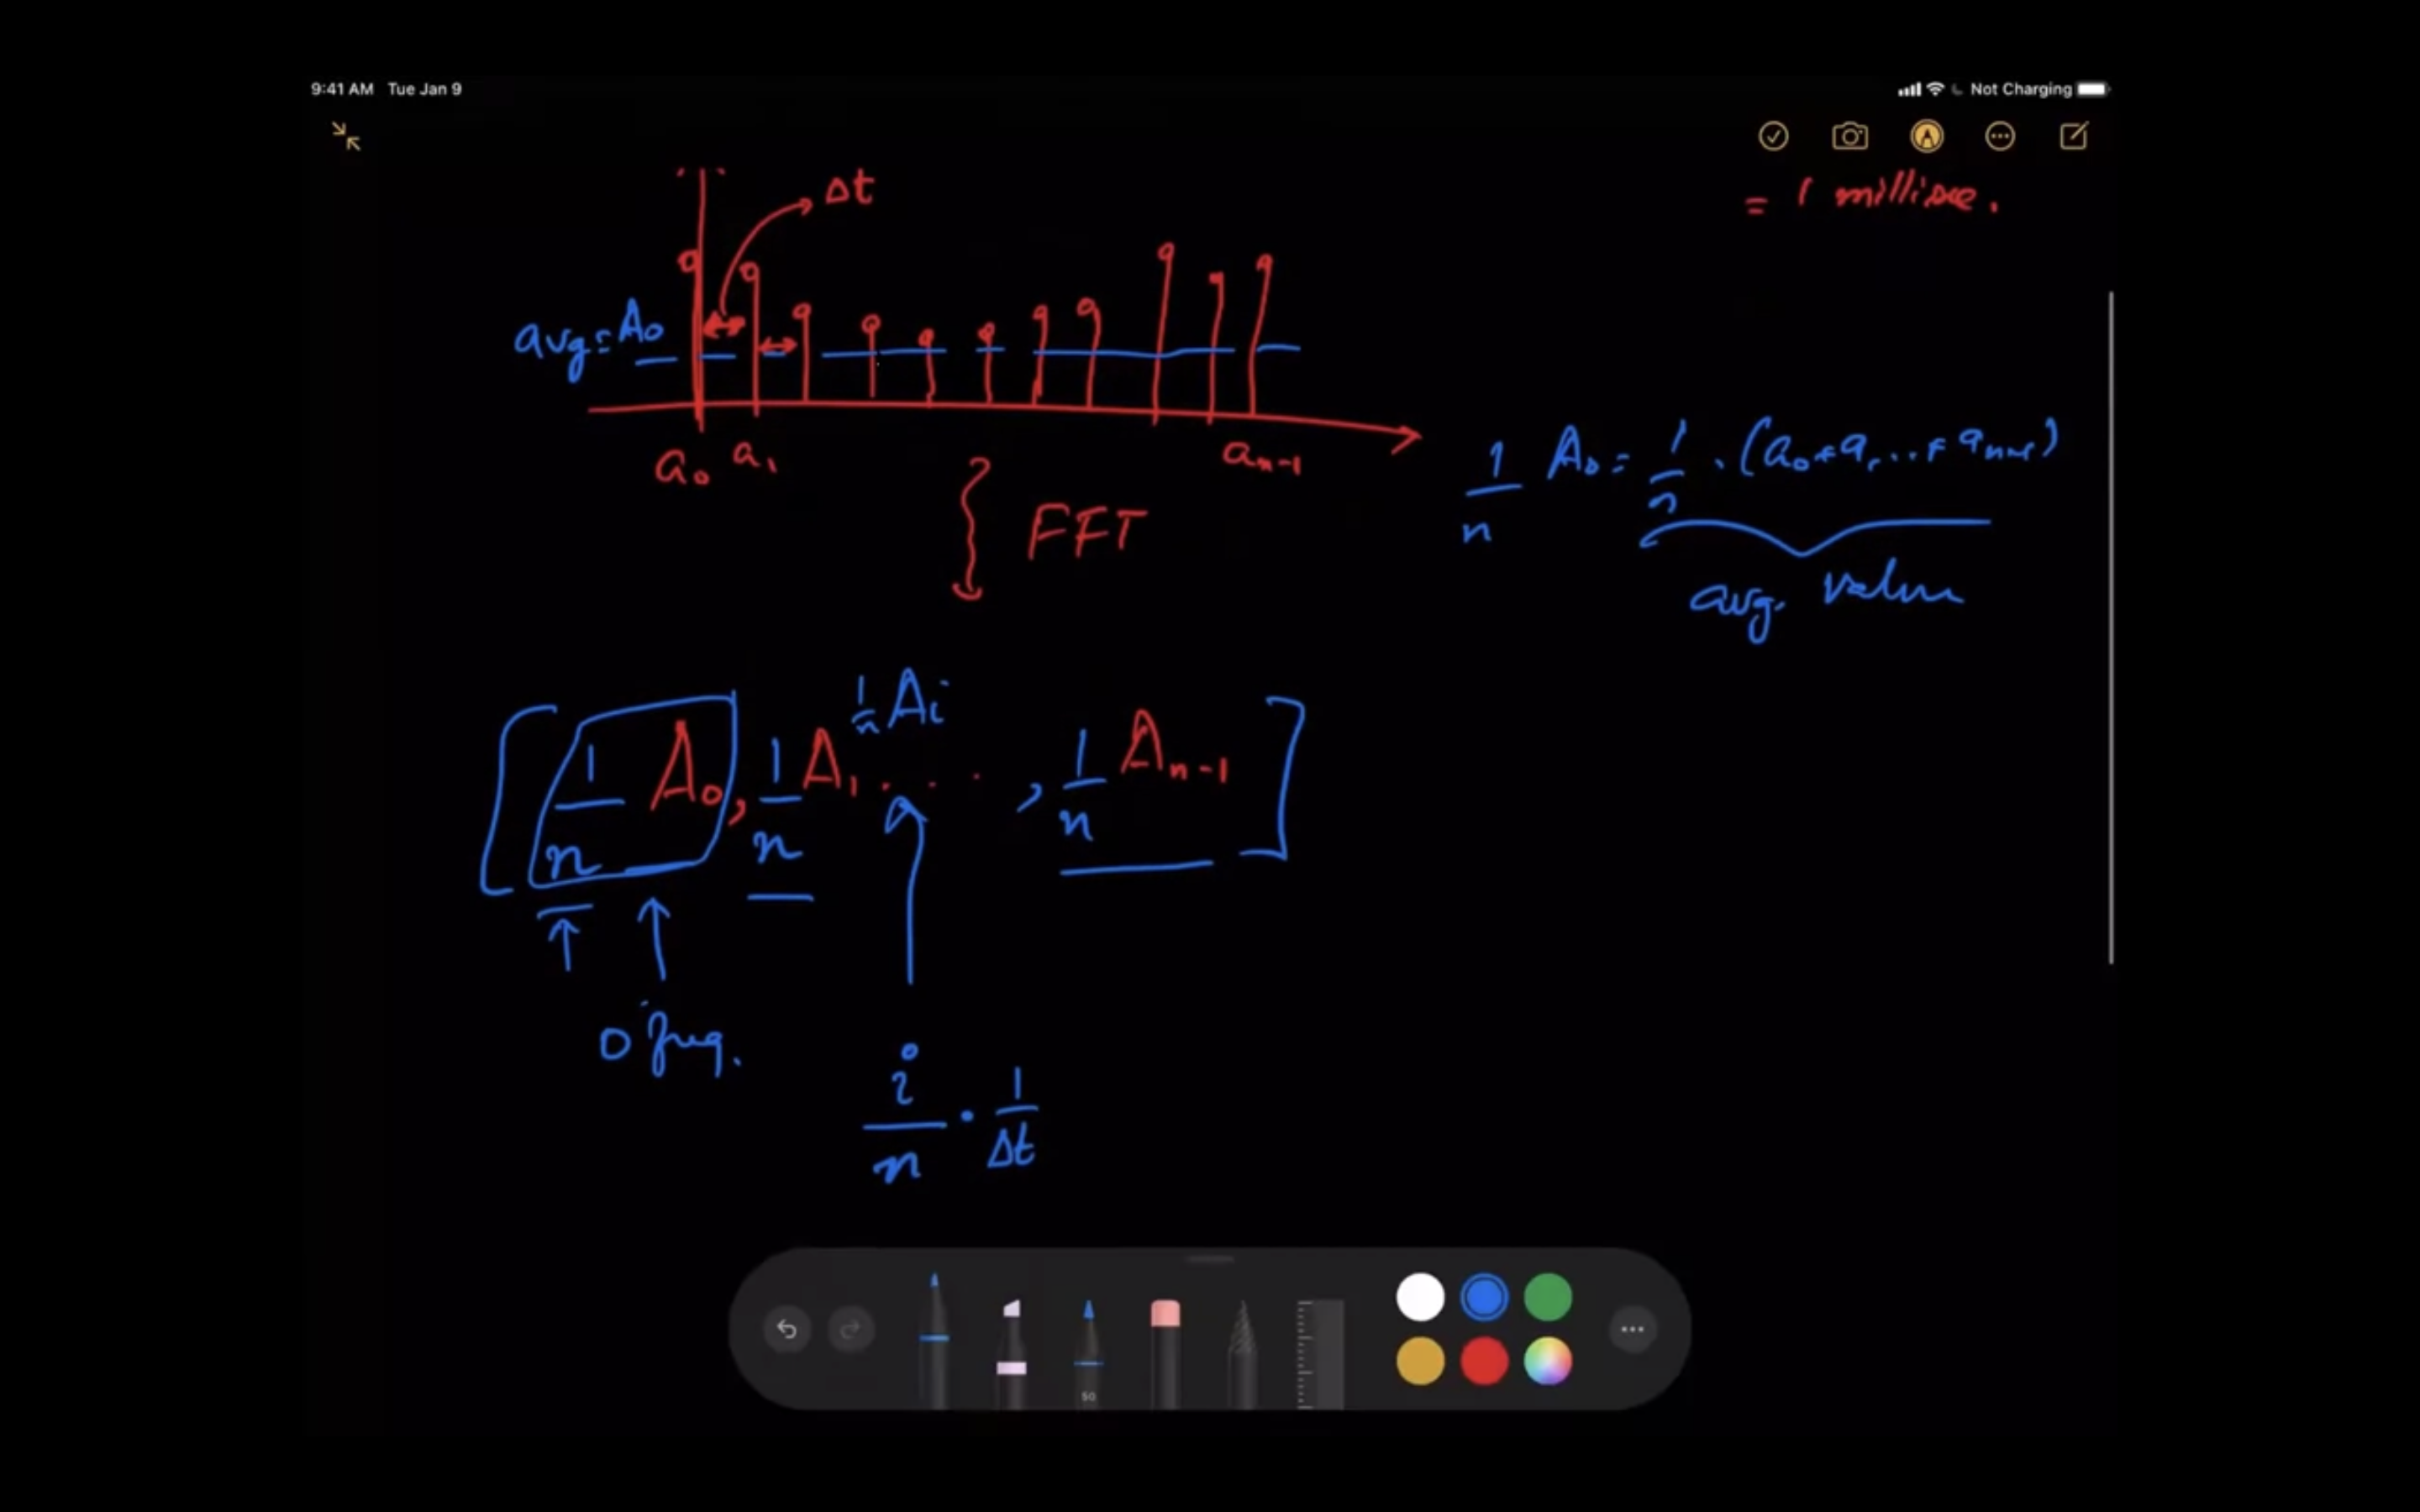 9:41 AM Tue Jan 9
Not Charging
= 1 millisec.
Δt
avg = A₀
a₀ a₁ aₙ₋₁
FFT
1/n A₀ = 1/n · (a₀ + a₁ ... + aₙ₋₁)
avg. value
1/n Aᵢ
[1/n A₀, 1/n A₁ . . . , 1/n Aₙ₋₁]
0 freq.
i/n · 1/Δt
50